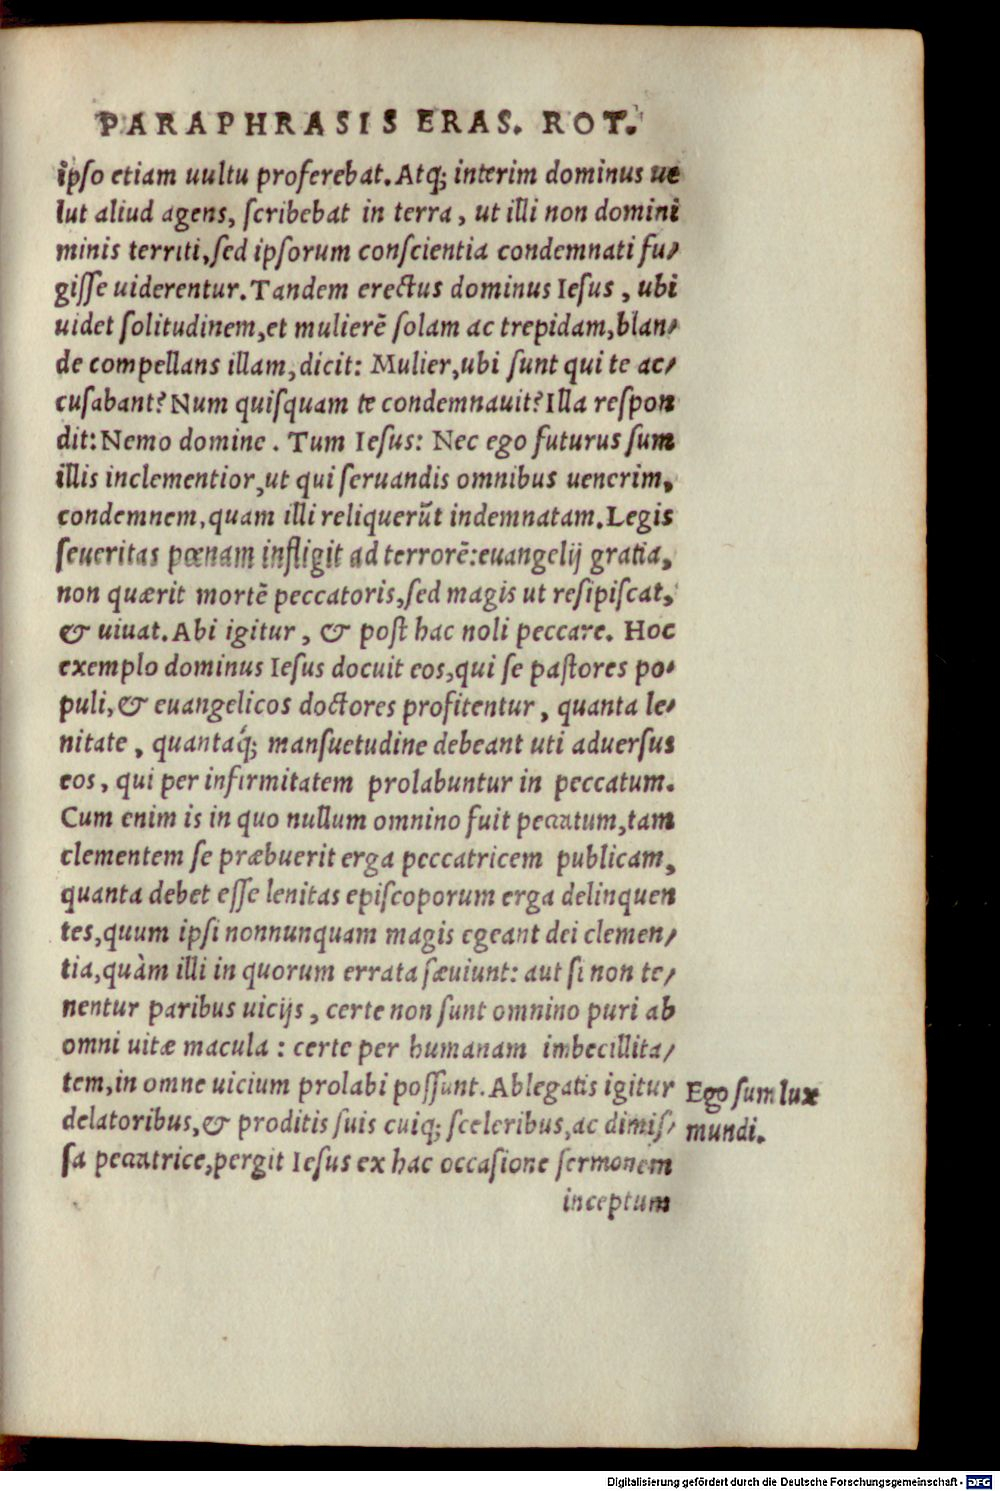 PARAPHRASIS ERAS. ROT.
ipso etiam uultu proferebat. Atq; interim dominus ue
lut aliud agens, scribebat in terra, ut illi non domini
minis territi, sed ipsorum conscientia condemnati fu/
gisse uiderentur. Tandem erectus dominus Iesus, ubi
uidet solitudinem, et mulierē solam ac trepidam, blan/
de compellans illam, dicit: Mulier, ubi sunt qui te ac/
cusabant? Num quisquam te condemnauit? Illa respon
dit: Nemo domine. Tum Iesus: Nec ego futurus sum
illis inclementior, ut qui seruandis omnibus uenerim,
condemnem, quam illi reliquerūt indemnatam. Legis
seueritas pœnam infligit ad terrorē: euangelij gratia,
non quærit mortē peccatoris, sed magis ut resipiscat,
& uiuat. Abi igitur, & post hac noli peccare. Hoc
exemplo dominus Iesus docuit eos, qui se pastores po/
puli, & euangelicos doctores profitentur, quanta le/
nitate, quantaq́; mansuetudine debeant uti aduersus
eos, qui per infirmitatem prolabuntur in peccatum.
Cum enim is in quo nullum omnino fuit peccatum, tam
clementem se præbuerit erga peccatricem publicam,
quanta debet esse lenitas episcoporum erga delinquen
tes, quum ipsi nonnunquam magis egeant dei clemen/
tia, quàm illi in quorum errata sæuiunt: aut si non te/
nentur paribus uicijs, certe non sunt omnino puri ab
omni uitæ macula: certe per humanam imbecillita/
tem, in omne uicium prolabi possunt. Ablegatis igitur
delatoribus, & proditis suis cuiq; sceleribus, ac dimis/
sa peccatrice, pergit Iesus ex hac occasione sermonem
inceptum
Ego sum lux
mundi.
Digitalisierung gefördert durch die Deutsche Forschungsgemeinschaft - DFG